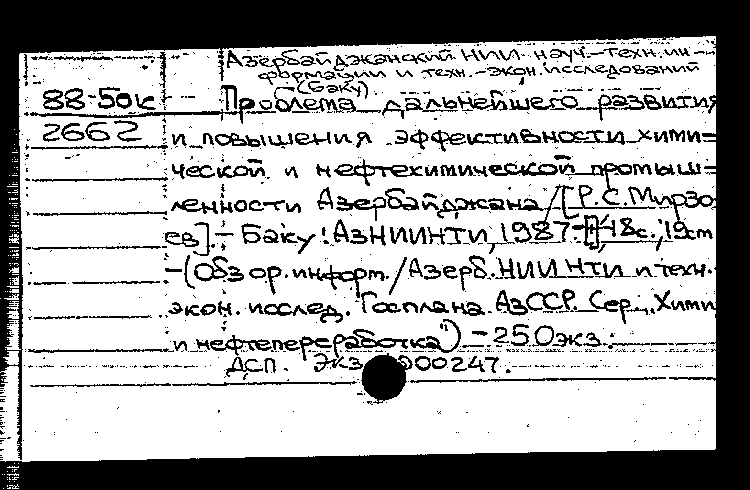 Азербайджанский НИИ науч.-техн. ин-
формации и техн.-экон. исследований
(Баку).
88-50к Проблема дальнейшего развития
2662 и повышения эффективности хими-
ческой и нефтехимической промыш-
ленности Азербайджана/[Р.С.Мирзо-
ев].- Баку: АзНИИНТИ, 1987.- 18с.; 19см
-(Обзор. информ./Азерб. НИИ НТИ и техн.-
экон. исслед. Госплана АзССР. Сер. "Хими
и нефтепереработка") -250экз.
ДСП. Экз 000247.